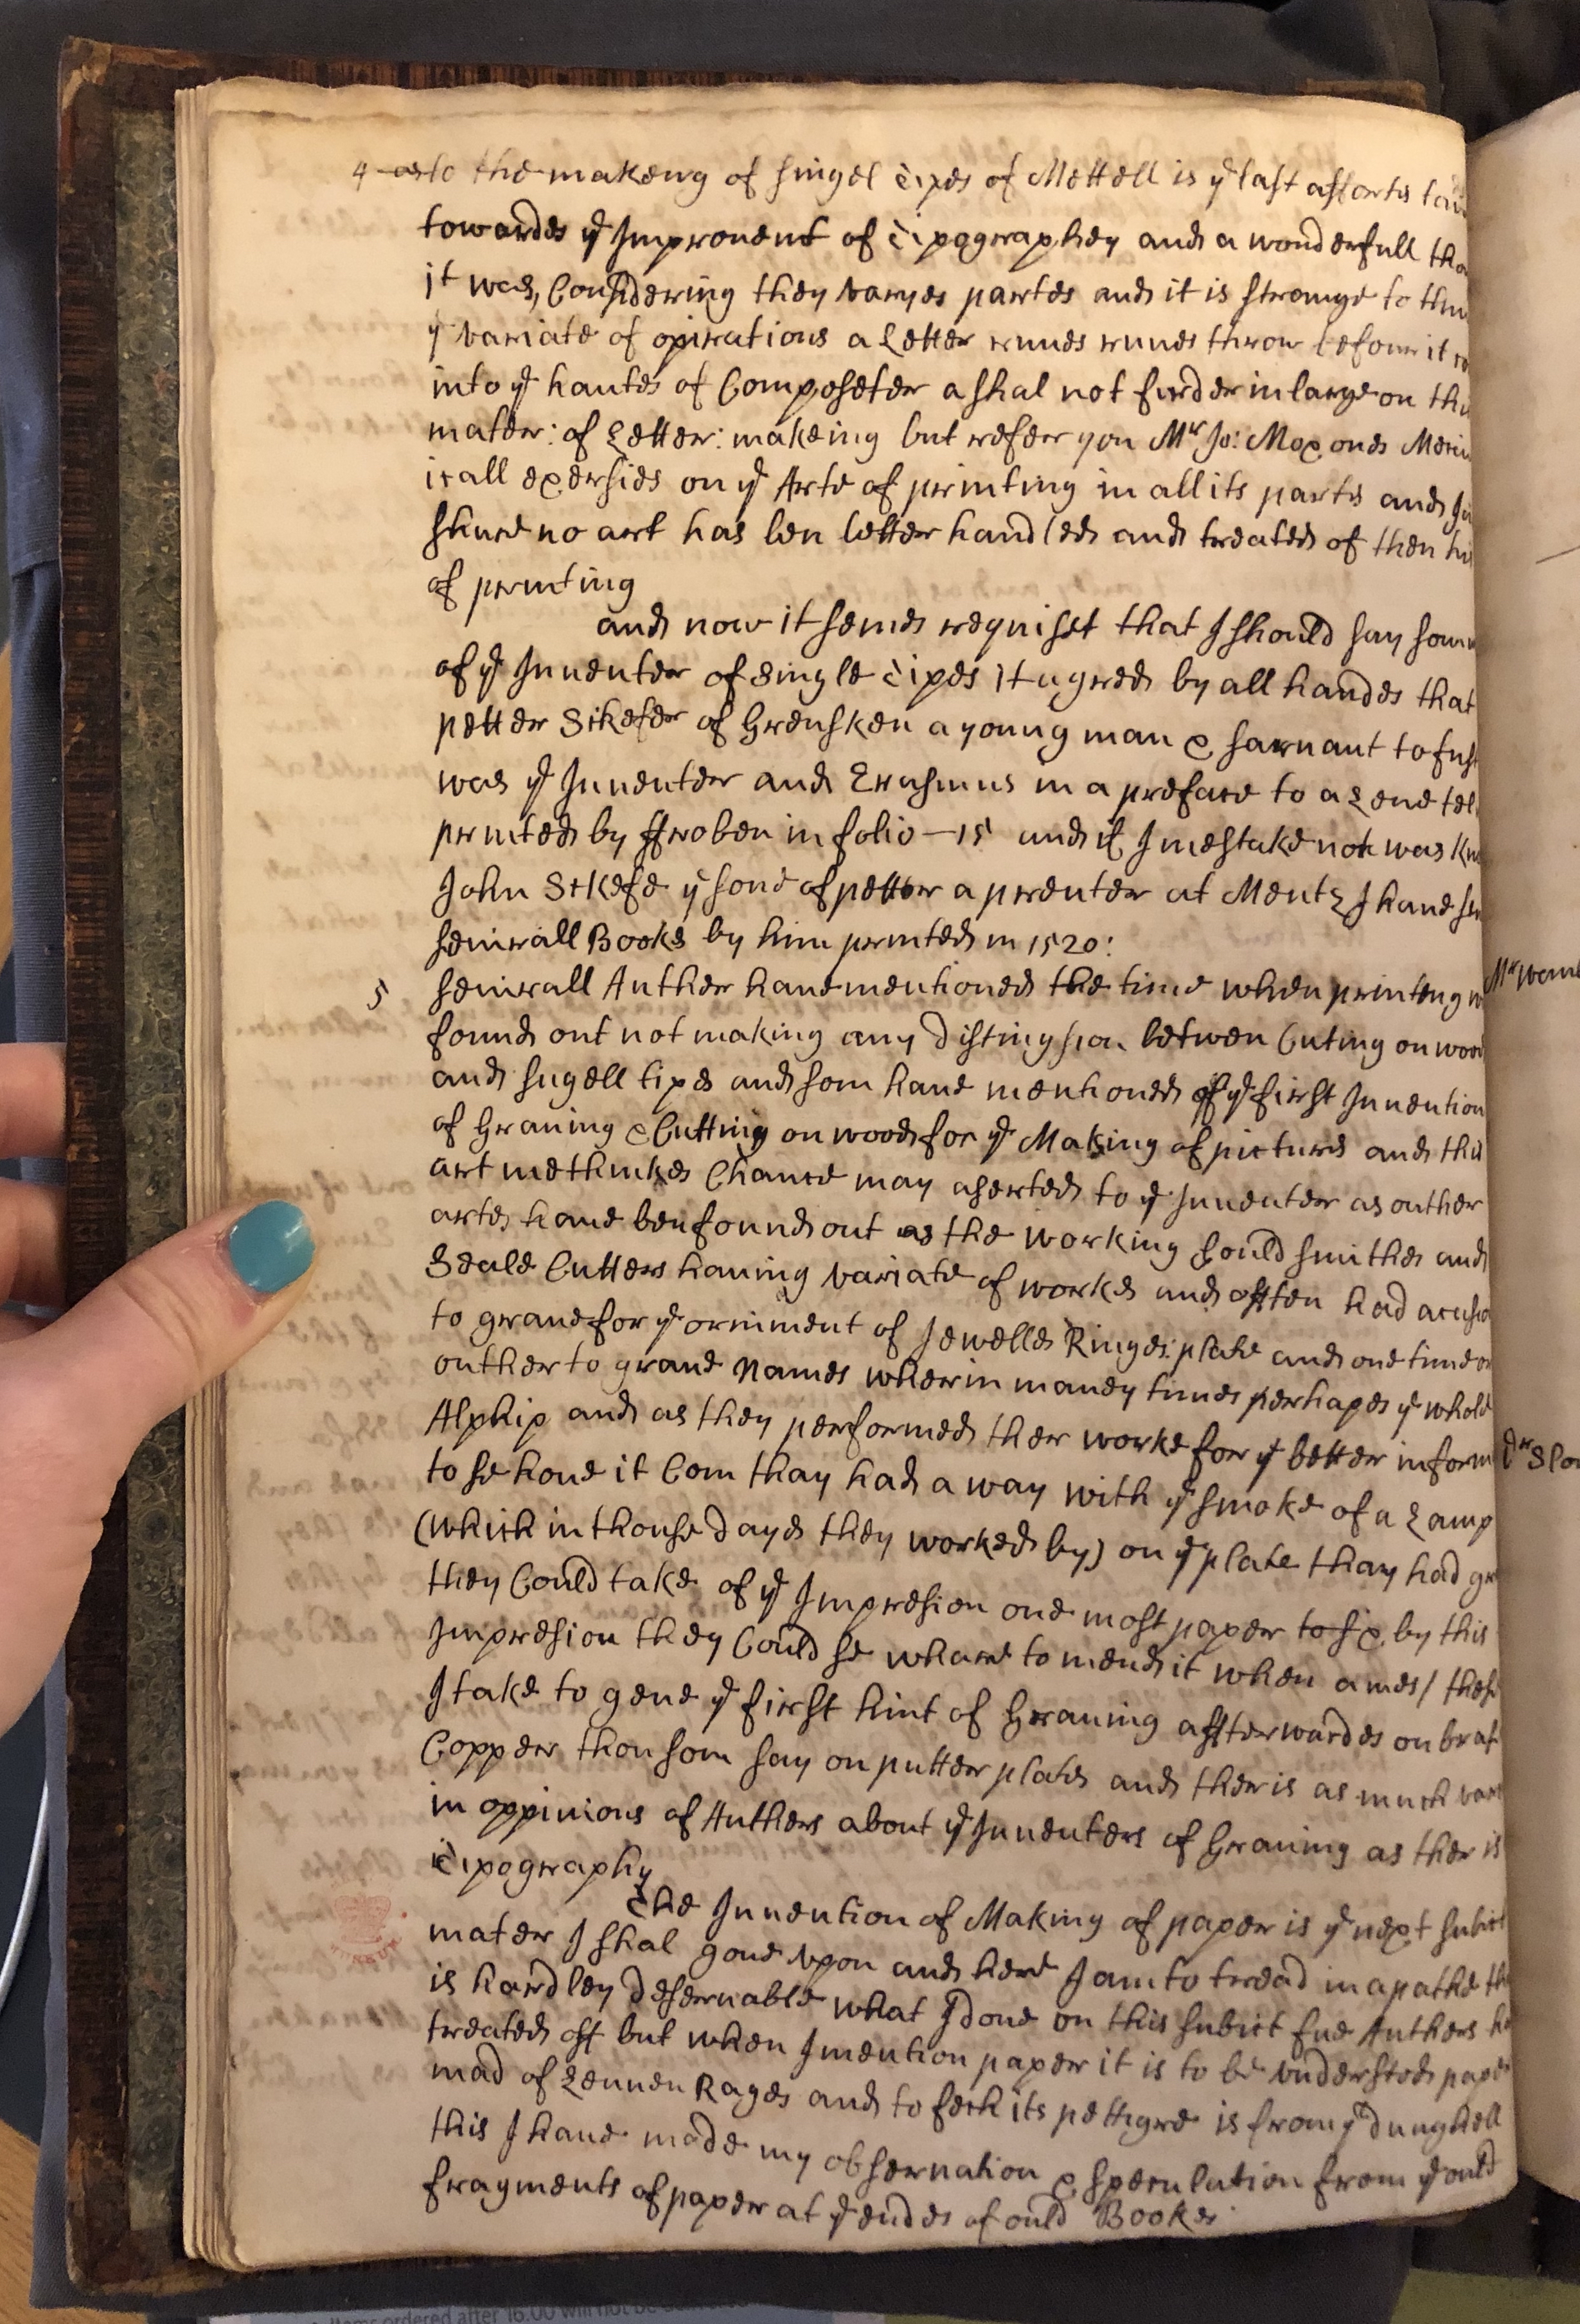 4 as to the makeng of singel Tipes of Mettell is yᵉ last
towardes yᵉ Improuent of Tipograephey and a wonderfull
it was, Considering they varyes partes and it is strange to
yᵉ variate of opirations a Letter runes runes throw before it
into yᵉ handes of Composeter a shal not furder inlarge on
mater: of Letter: makeing but refeer you Mʳ Jo: Moxones
icall exersies on yᵉ Arte of printing in all its partes and
shure no art has ben better handled and treated of then
of printing
and now it semes requiset that I should say
of yᵉ Inuenter of single Tipes it agreed by all handes that
petter Skefer of Grensken a young man & saruant to
was yᵉ Inuenter and Erasmus in a preface to a
printed by ffroben in folio — 15 and if I mestake not was
John Skefe yᵉ sone of petter a prenter at Mentz I haue
seuirall Bookes by him printed in 1520:
5 seuirall Auther haue mentioned the time when printeng
found out not making any distingsion betwen Cuting on wood
and singell tipes and som haue mentioned of yᵉ first Inuention
of Grauing & Cutting on wood for yᵉ Making of pictures and this
art methinkes Chance may aserted to yᵉ Inuenter as outher
artes haue ben found out as the working Gould smithes and
Seale Cutters hauing variate of workes and often had
to graue for yᵉ orniment of Jewelles Ringes: plate and one time or
outher to graue Names wherin maney times perhapes yᵉ whole
Alphip and as they performed ther worke for yᵉ better
to se houe it Com thay had a way with yᵉ smoke of a Lamp
(which in thouse dayes they worked by) on yᵉ plate thay had
they Could take of yᵉ Impresion one most paper to six by this
Impresion they Could se whare to mend it when ames / these
I take to geue yᵉ first hint of Grauing affterwardes on
Copper thou som say on putter plates and ther is as much
in oppinions of Authers about yᵉ Inuenters of Grauing as ther is
Tipography
The Inuention of Making of paper is yᵉ next subict
mater I shal goue vpon and here I am to tread in a pathe
is hardley desernable what I done on this subict fue Authers
treated off but when I mention paper it is to be vnderstod paper
mad of Lennen Rages and to fech its pettigre is from yᵉ dunghell
this I haue made my obseruation & speculation from yᵉ ould
fragments of paper at yᵉ endes of ould Bookes